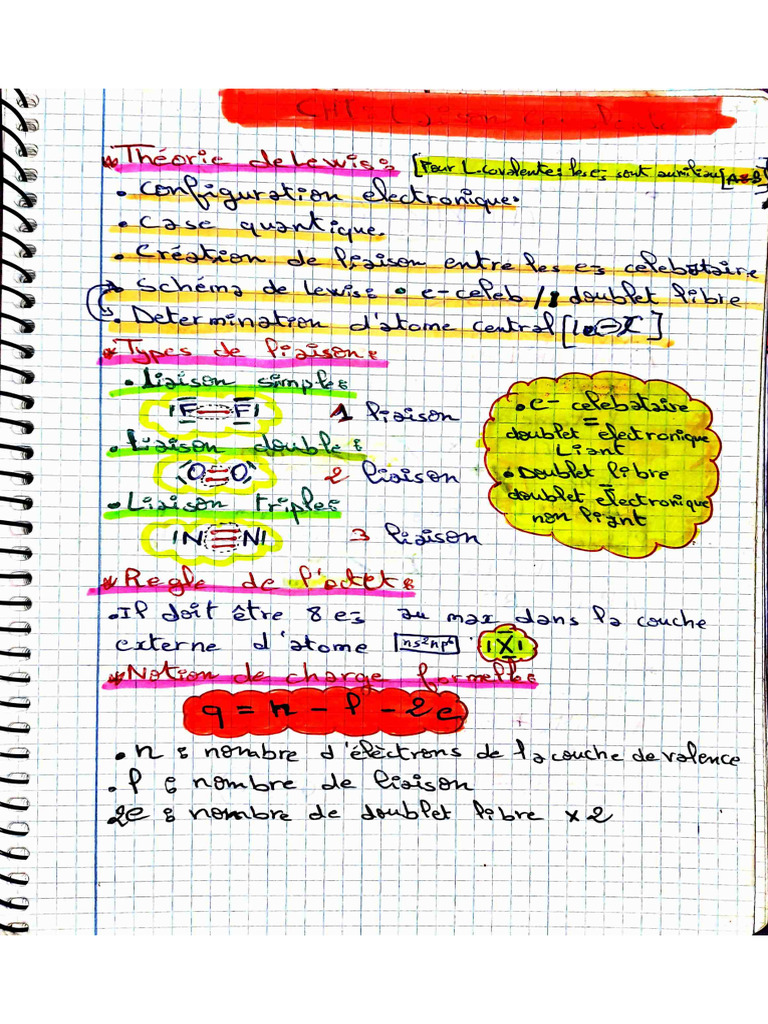 CHI
* Théorie de Lewis : [Pour L.covalente : les es sont auxiliau [A B]
• Configuration electronique.
• Case quantique.
• Création de liaison entre les es celebataire
• Schéma de Lewise • e- celeb / | doublet libre
• Determination d'atome central
* Types de liaison :
• Liaison simple :
|F — F| 1 liaison
• Liaison double :
O = O 2 liaison
• Liaison triples
|N ≡ N| 3 liaison
• e- celebataire
=
doublet electronique
Liant
• Doublet libre
=
doublet electronique
non liant
* Regle de l'octet :
• Il doit être 8 es au max dans la couche
externe d'atome ns²np⁶ |X|
* Notion de charge formelle :
q = n - l - 2e
• n : nombre d'élèctrons de la couche de valence
• l : nombre de liaison
2e : nombre de doublet libre x 2